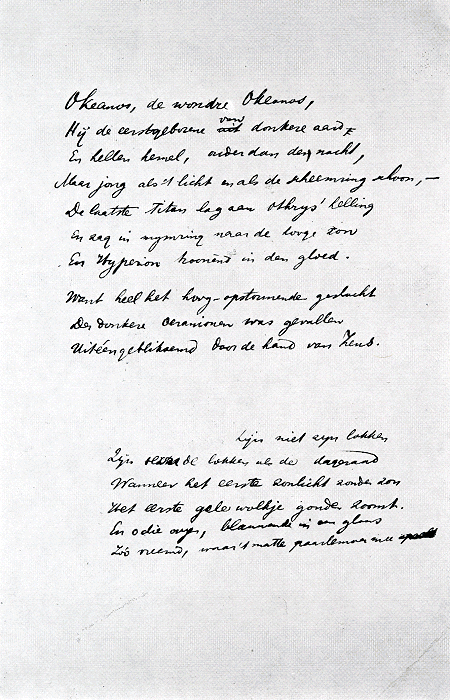 Okeanos, de wondre Okeanos,
Hij de eerstgeborene uit van donkere aard,
En hellen hemel, ouder dan de nacht,
Maar jong als 't licht en als de scheemring schoon, —
De laatste Titan lag aan Othrys' helling
En zag in mymring naar de hooge zon
En Hyperion troonend in den gloed.
Want heel het hoog-opstormende geslacht
Der donkere Ouranionen was gevallen
Uitééngebliksemd door de hand van Zeus.
Zijn niet zijn lokken
Zijn de lokken als de dageraad
Wanneer het eerste zonlicht zonder zon
Het eerste gele wolkje gonder zoomt.
En o die oogen, blauwende in een glans
Zóó vreemd, waar 't matte paarlemoer mee